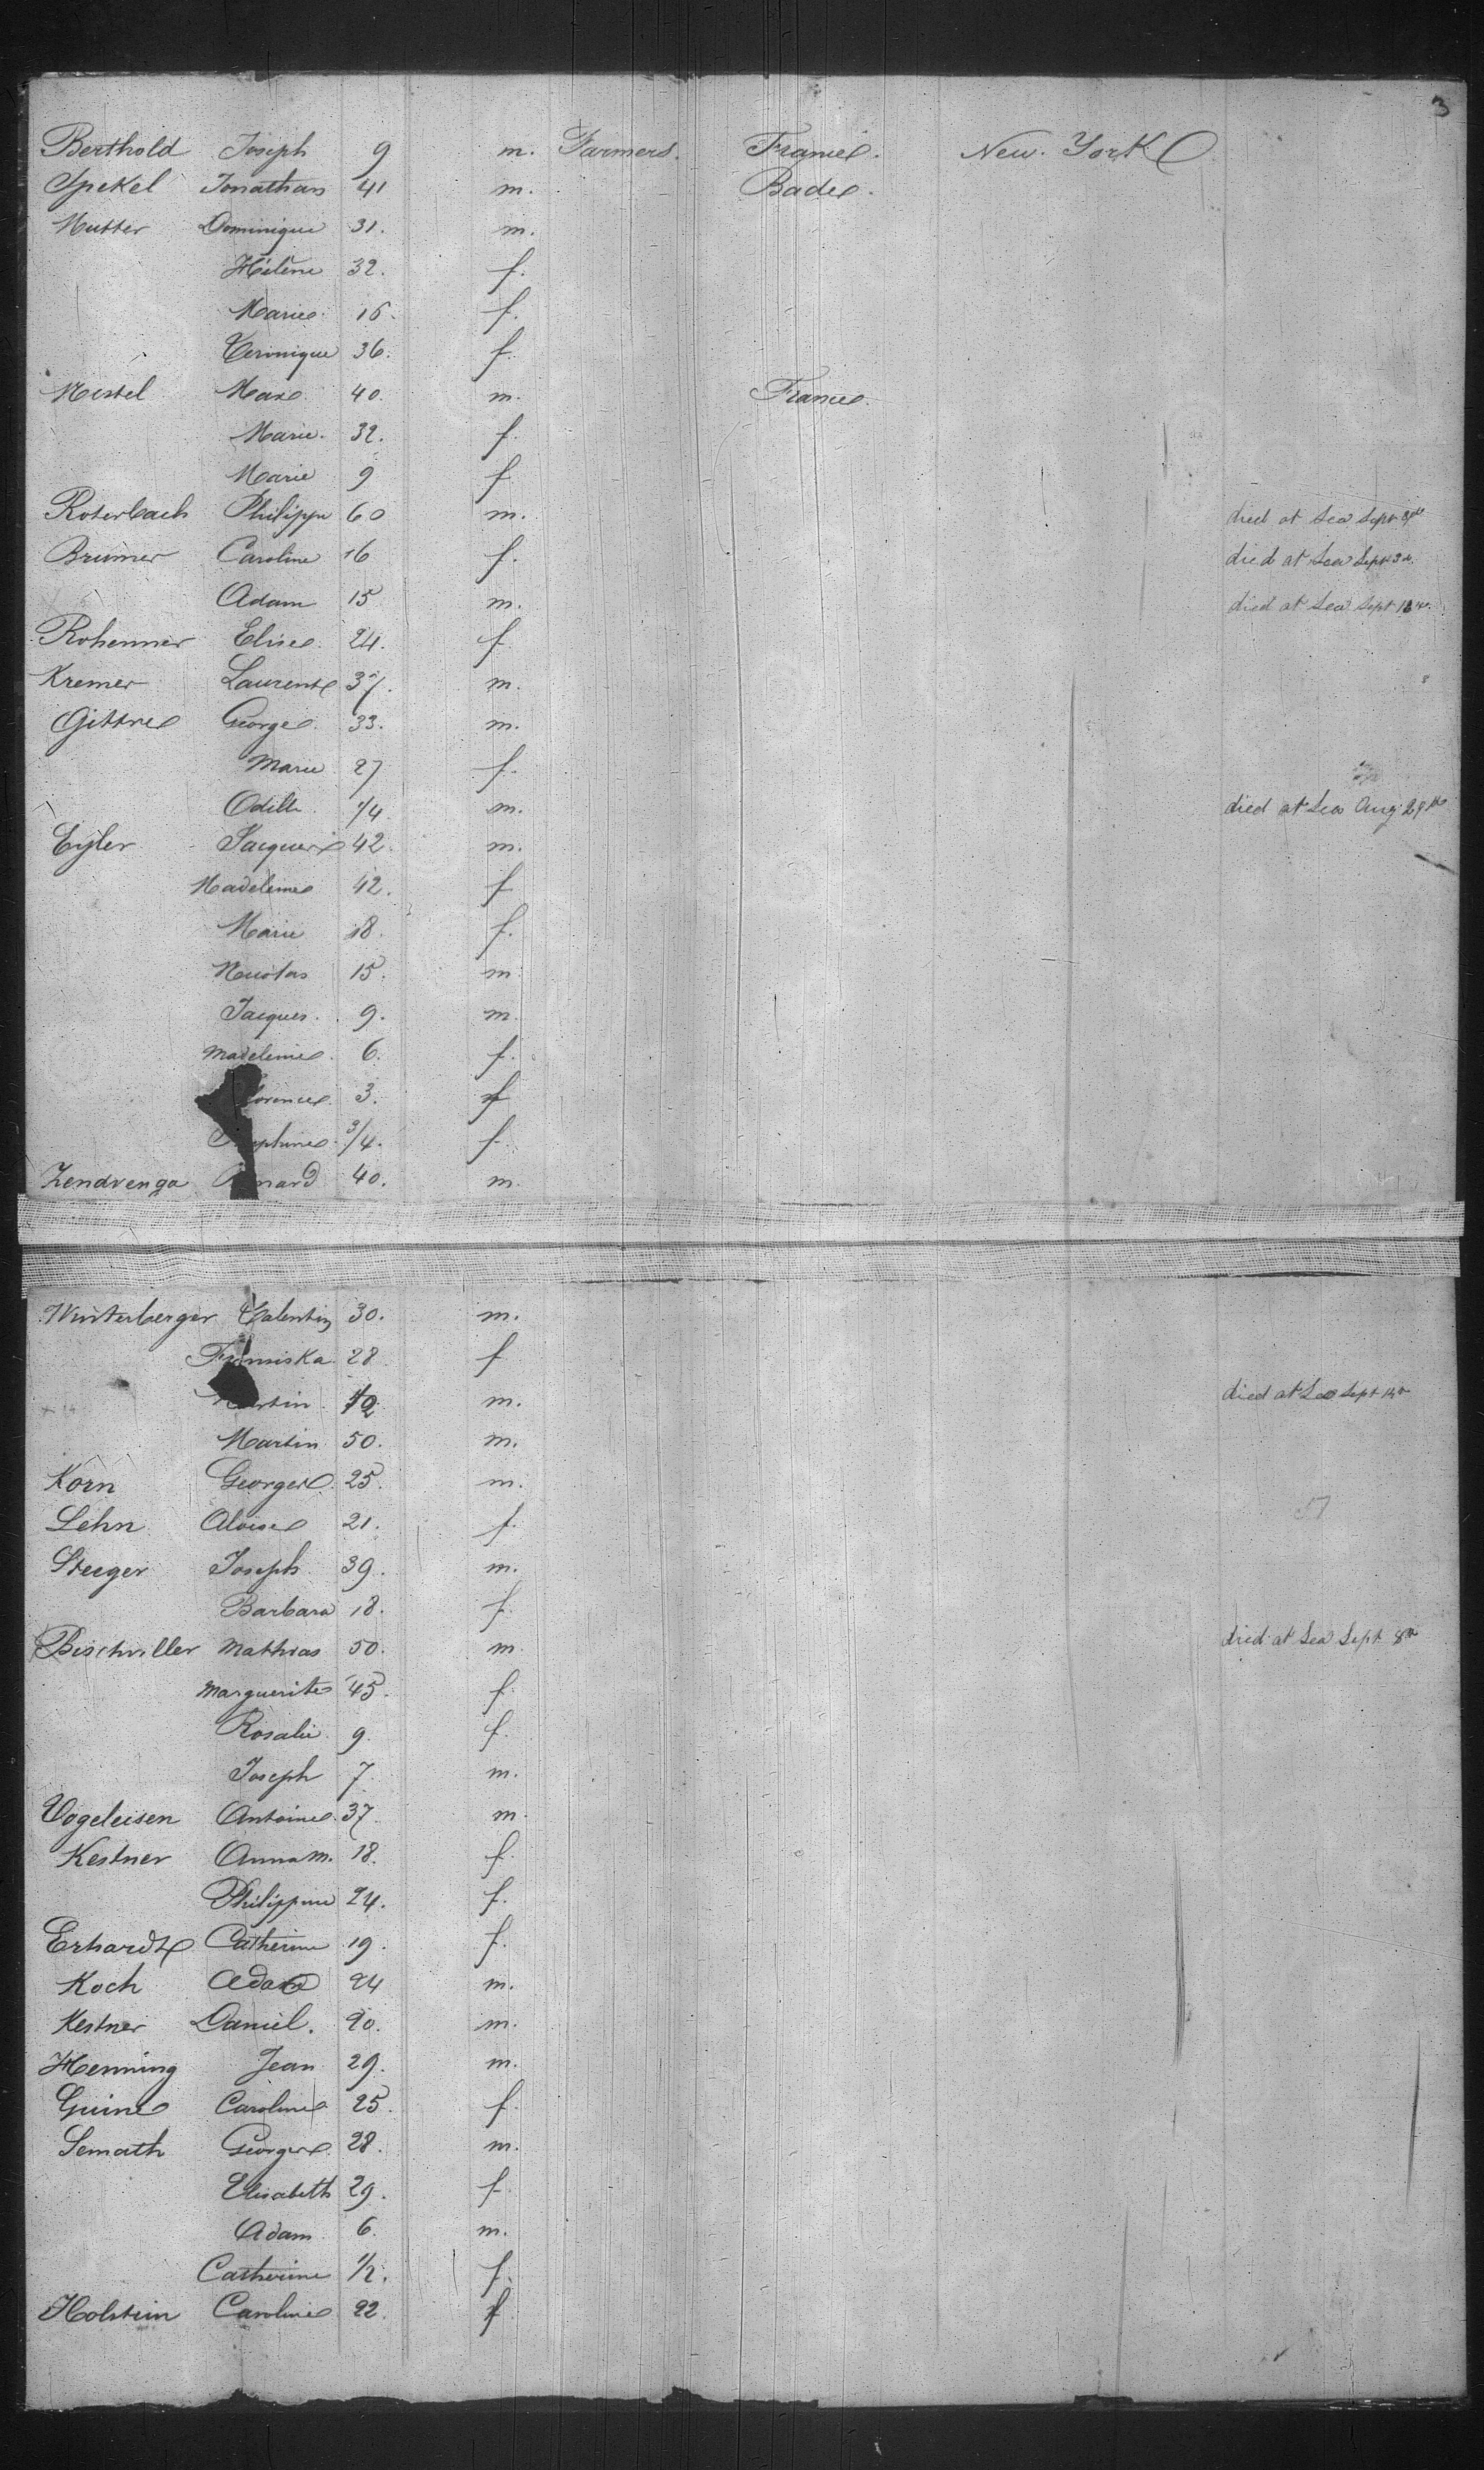 3
Berthold Joseph 9 m. Farmers. France. New York
Spekel Jonathan 41 m. Bade.
Mutter Dominique 31. m.
Hélène 32. f.
Marie 16. f.
Veronique 36. f.
Mestel Marc 40. m. France.
Marie. 32. f.
Marie 9 f.
Roterbach Philippe 60 m. died at Sea Sept
Brumer Caroline 16 f. died at Sea Sept 3d.
Adam 15 m. died at Sea Sept
Rohenner Elise. 24. f
Kremer Laurent 37. m.
Gittre George. 33. m.
Marie 27 f.
Odille 1/4 m. died at Sea Aug 29th
Eyler Jacques 42. m.
Madeleine 42. f
Marie 18. f.
Nicolas 15. m
Jacques. 9. m.
Madeleine. 6. f.
3. f
3/4. f.
Zendvenga 40. m
Winterberger Valentin 30. m.
Franciska 28 f
Martin m. died at Sea Sept
Martin 50. m.
Korn George. 25. m.
Lehn Aloise 21. f.
Steeger Joseph 39. m.
Barbara 18. f.
Bischviller Mathias 50. m died at Sea Sept 8th
Marguerite 45. f.
Rosalie 9. f.
Joseph 7 m.
Vogeleisen Antoine. 37 m.
Kestner Anna M. 18. f.
Philippine 24. f.
Erhardt Catherine 19. f.
Koch Adam 24 m.
Kestner Daniel. 20. m.
Henning Jean 29. m.
Guine Caroline 25. f.
Semath George 28. m.
Elisabeth 29. f.
Adam 6. m.
Catherine 1/2. f.
Holstein Caroline 22. f